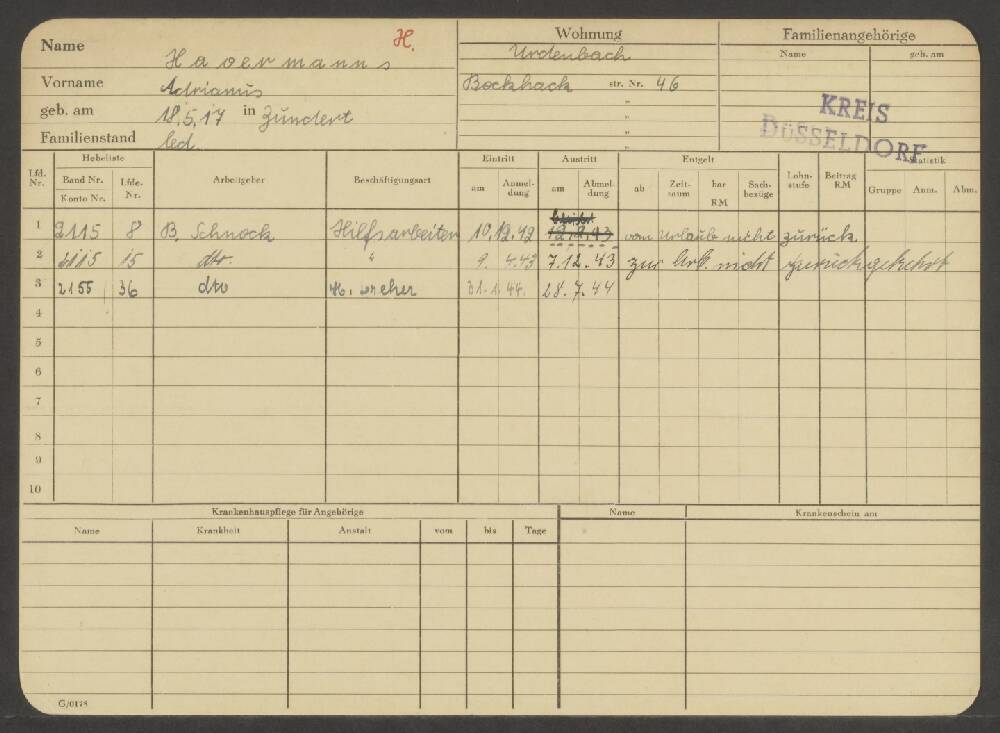 Name H a v e r m a n n s H.
Vorname Adrianus
geb. am 18.5.17 in Zundert
Familienstand led.
Wohnung
Urdenbach
Bockhack str. Nr. 46
"
"
"
Familienangehörige
Name geb. am
KREIS
DÜSSELDORF
Lfd. Nr. Hebeliste Arbeitgeber Beschäftigungsart Eintritt Austritt Entgelt Lohn-stufe Beitrag RM Statistik
Band Nr. Konto Nr. Lfde. Nr. am Anmel-dung am Abmel-dung ab Zeit-raum bar RM Sach-bezüge Gruppe Anm. Abm.
1 2115 8 B. Schnock Hilfsarbeiten 10.12.42 12.2.43 vom Urlaub nicht zurück.
2 2115 15 dto. " 9. 4.43 7.12.43 zur Arb. nicht zurückgekehrt
3 2155 36 dto 31.1.44. 28.7.44
4
5
6
7
8
9
10
Krankenhauspflege für Angehörige
Name Krankheit Anstalt vom bis Tage
Name Krankenschein am
G/0178